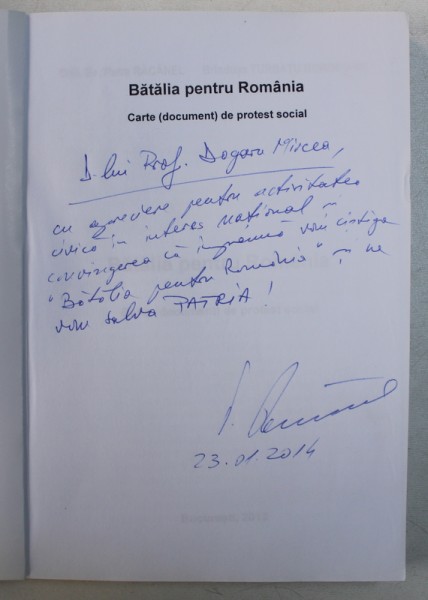 Bătălia pentru România
Carte (document) de protest social
D-lui Prof. Dogaru Mircea,
cu apreciere pentru activitatea
civică în interes național și
convingerea că împreună vom câștiga
"Bătălia pentru România" și ne
vom salva PATRIA!
23.01.2014